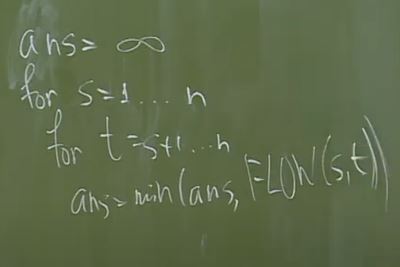 ans = ∞
for s=1 ... n
for t=s+1 ... n
ans = min(ans, FLOW(s,t))